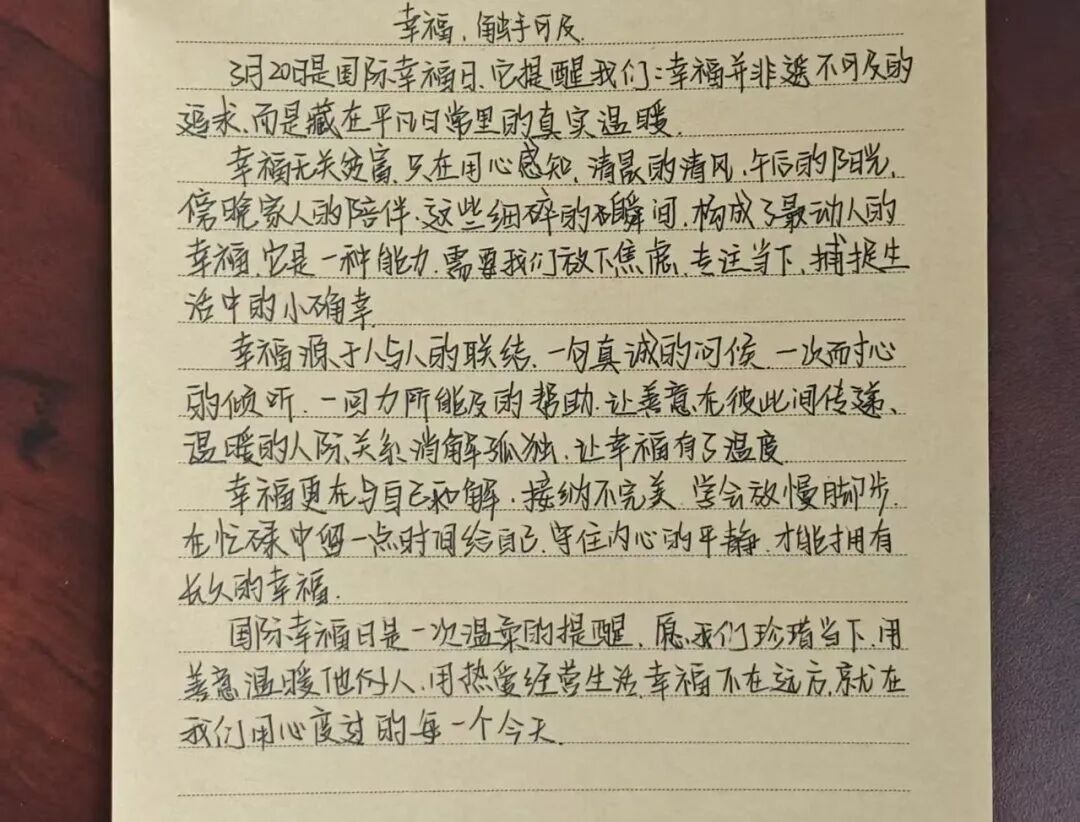 幸福,触手可及.
3月20日是国际幸福日,它提醒我们:幸福并非遥不可及的
追求,而是藏在平凡日常里的真实温暖.
幸福无关贫富,只在用心感知,清晨的清风,午后的阳光,
傍晚家人的陪伴.这些细碎的瞬间,构成了最动人的
幸福,它是一种能力,需要我们放下焦虑,专注当下,捕捉生
活中的小确幸.
幸福源于人与人的联结,一句真诚的问候,一次耐心
的倾听,一回力所能及的帮助.让善意在彼此间传递、
温暖的人际关系,消解孤独,让幸福有了温度.
幸福更在与自己和解.接纳不完美,学会放慢脚步.
在忙碌中留一点时间给自己,守住内心的平静.才能拥有
长久的幸福.
国际幸福日是一次温柔的提醒,愿我们珍惜当下,用
善意温暖他人,用热爱经营生活,幸福不在远方,就在
我们用心度过的每一个今天.